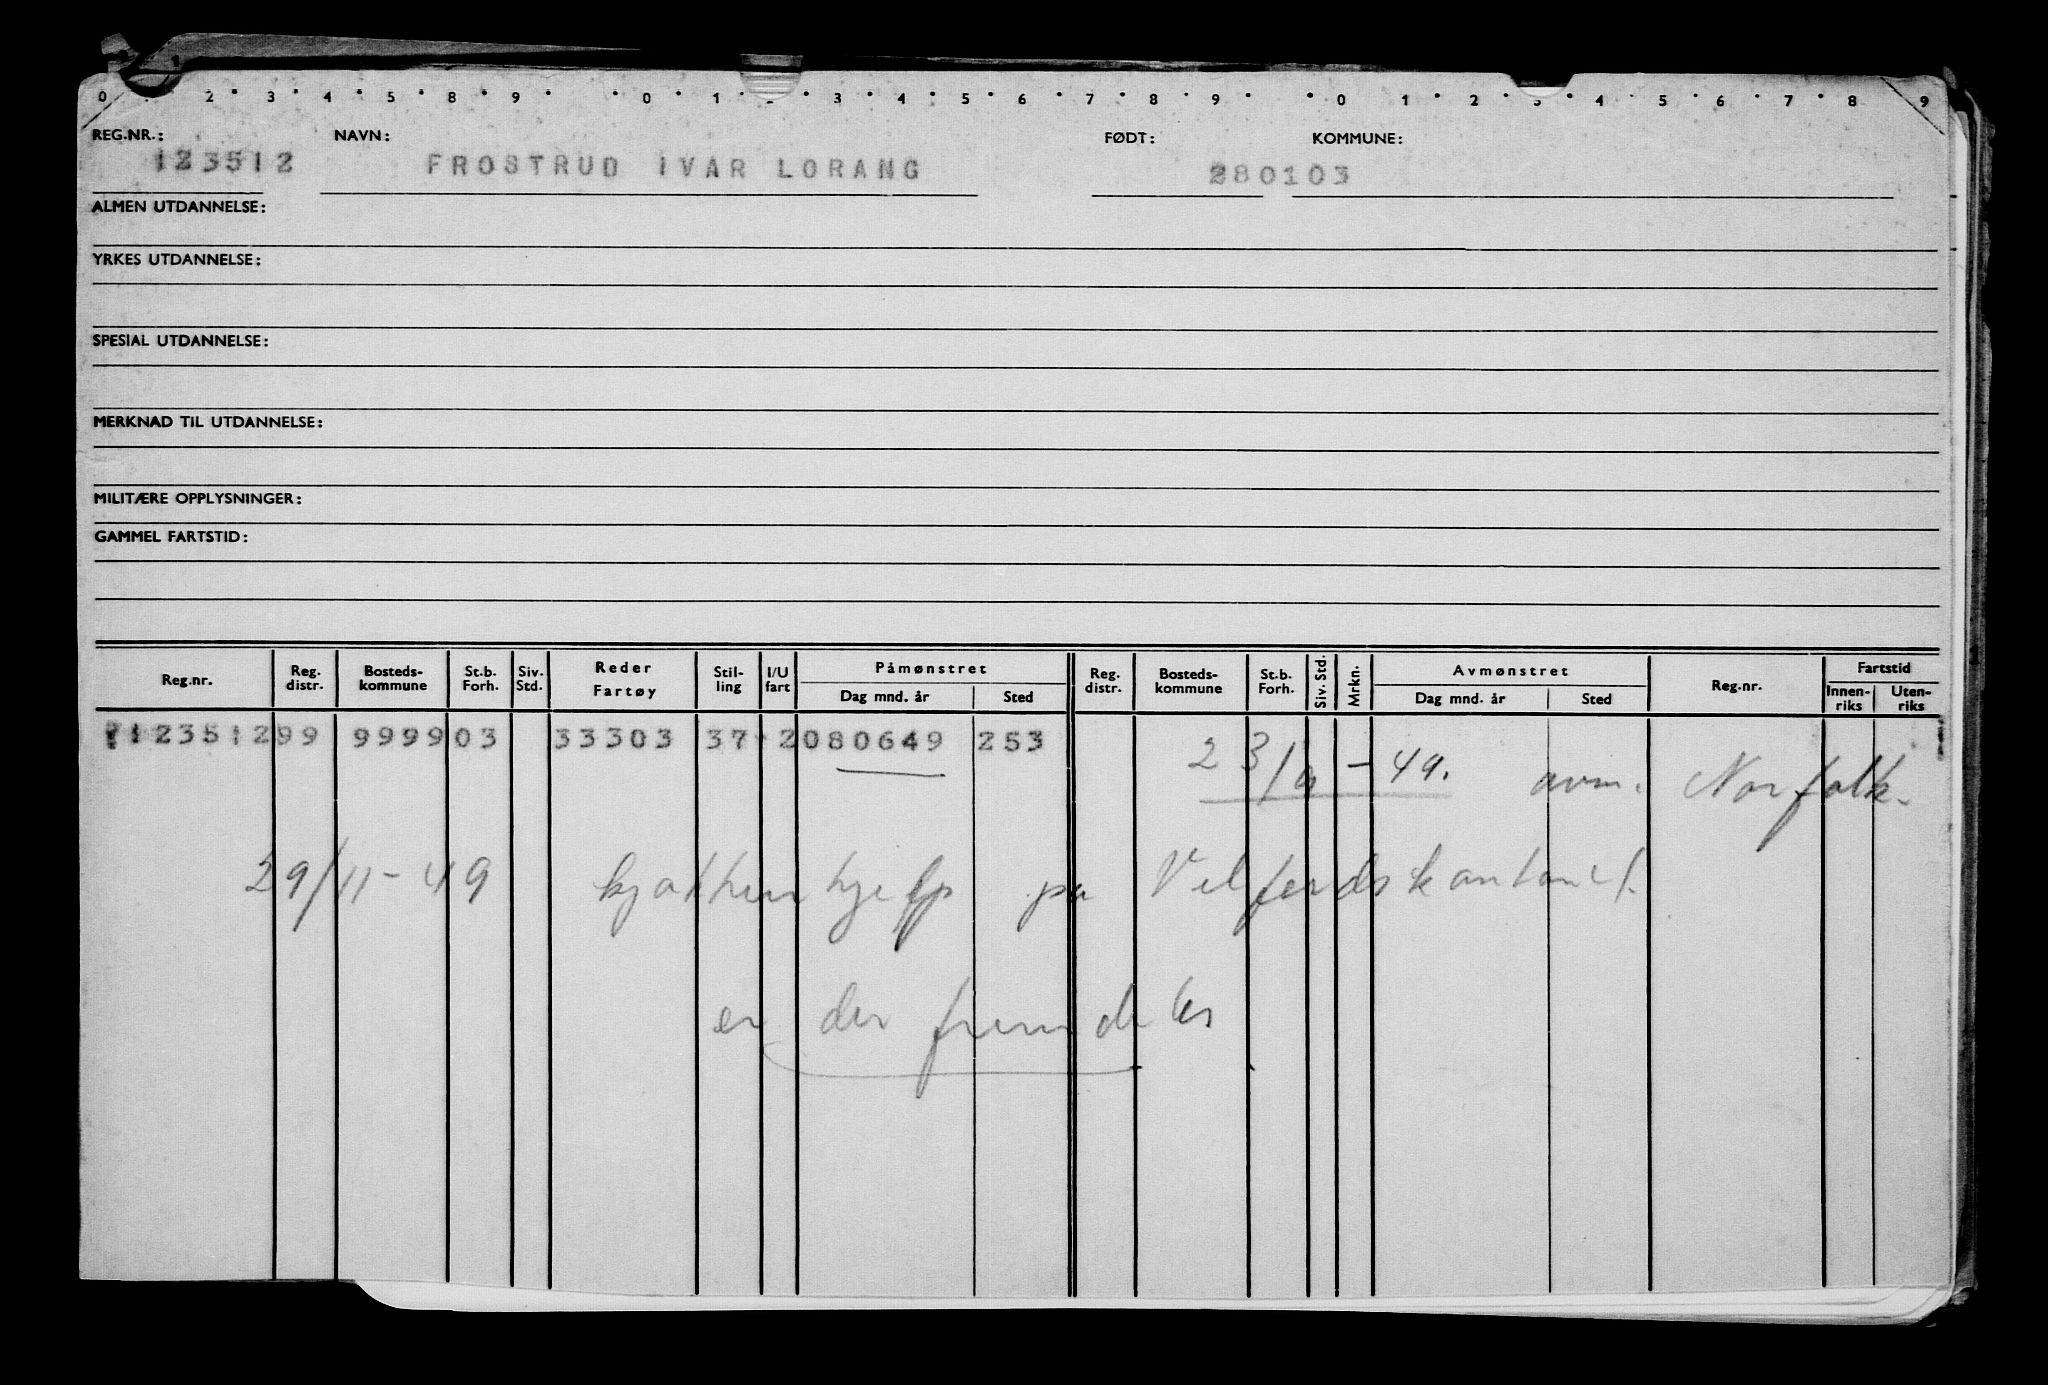 0 2 3 4 5 8 9 0 1 3 4 5 6 7 8 9 0 1 2 3 4 5 6 7 8 9
REG.NR.: NAVN: FØDT: KOMMUNE:
123512 FROSTRUD IVAR LORANG 280103
ALMEN UTDANNELSE:
YRKES UTDANNELSE:
SPESIAL UTDANNELSE:
MERKNAD TIL UTDANNELSE:
MILITÆRE OPPLYSNINGER:
GAMMEL FARTSTID:
Reg.nr. Reg. distr. Bosteds- kommune St.b. Forh. Siv. Std. Reder Fartøy Stil- ling I/U fart Påmønstret Dag mnd. år Sted Reg. distr. Bosteds- kommune St.b. Forh. Siv. Std. Mrkn. Avmønstret Dag mnd. år Sted Reg.nr. Fartstid Innen- riks Uten- riks
712351299 999903 33303 37 2080649 253
23/9 - 49. avm. Norfolk.
29/11-49 kjøkkenhjelp på Velferdskontoret.
er der fremdeles